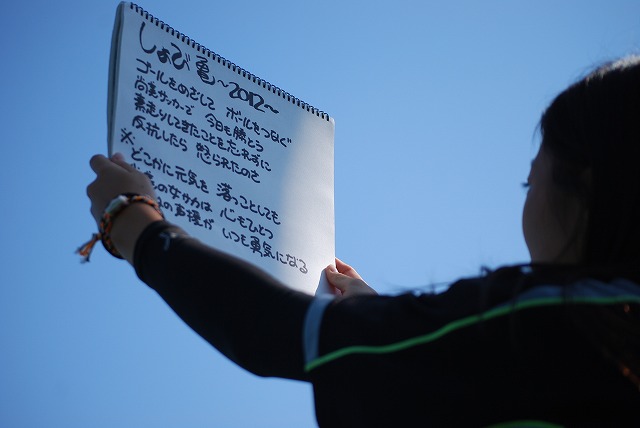 しょび亀～2012～
ゴールをめざして ボールをつなぐ
尚美サッカーで 今日も勝とう
素走りしてきたことを忘れずに
反抗したら 怒られたのさ
※どこかに元気を 落っことしても
なかは 心もひとつ
の声援が いつも勇気になる